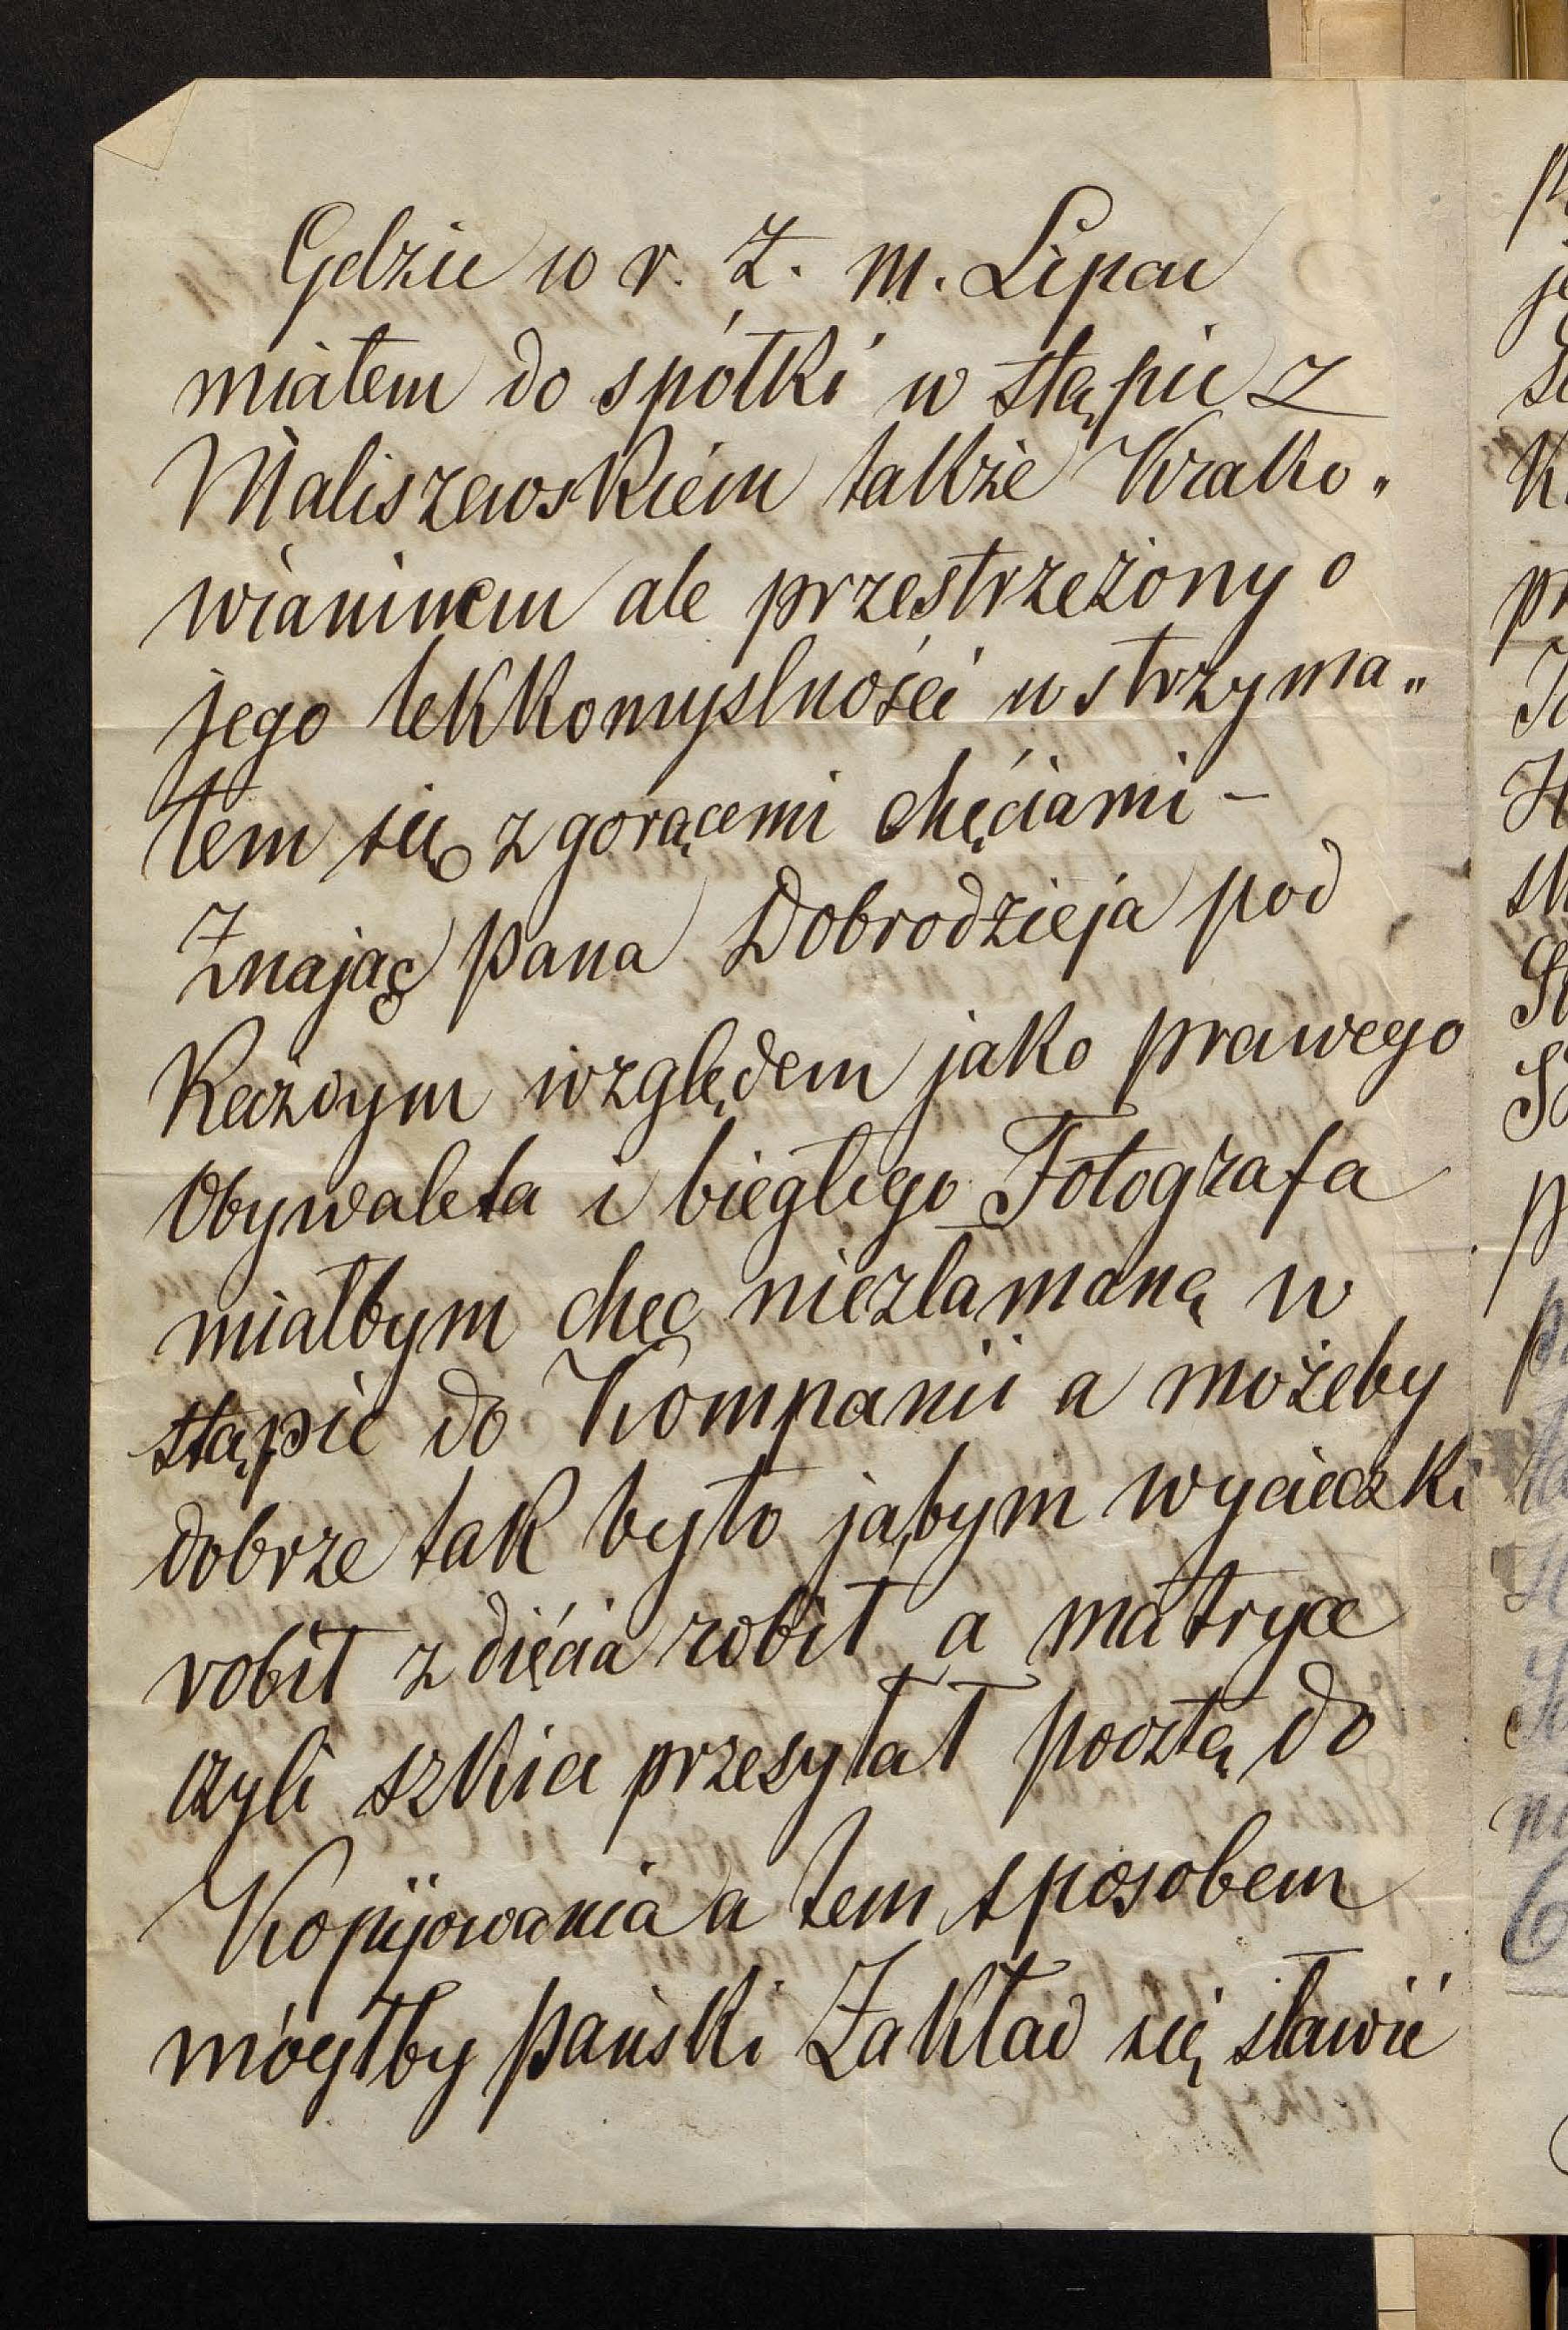 Gdzie w r. Z. m. Lipcu
miałem do spółki w stąpić z
Maliszewskiem także Krako„
wianinem ale przestrzeżony o
jego lekkomyslności wstrzyma„
łem się z gorącemi chęciami –
Znając Pana Dobrodzieja pod
Każdym względem jako prawego
Obywatela i biegłego Fotografa
miałbym chęć niezłamaną w
stąpić do Kompanii a możeby
dobrze tak było jabym wycieczki
robił zdięcia robił a matryce
czyli szkice przesyłał pocztą do
Kopijowania a tem sposobem
mógłby Pański Zakład się sławić